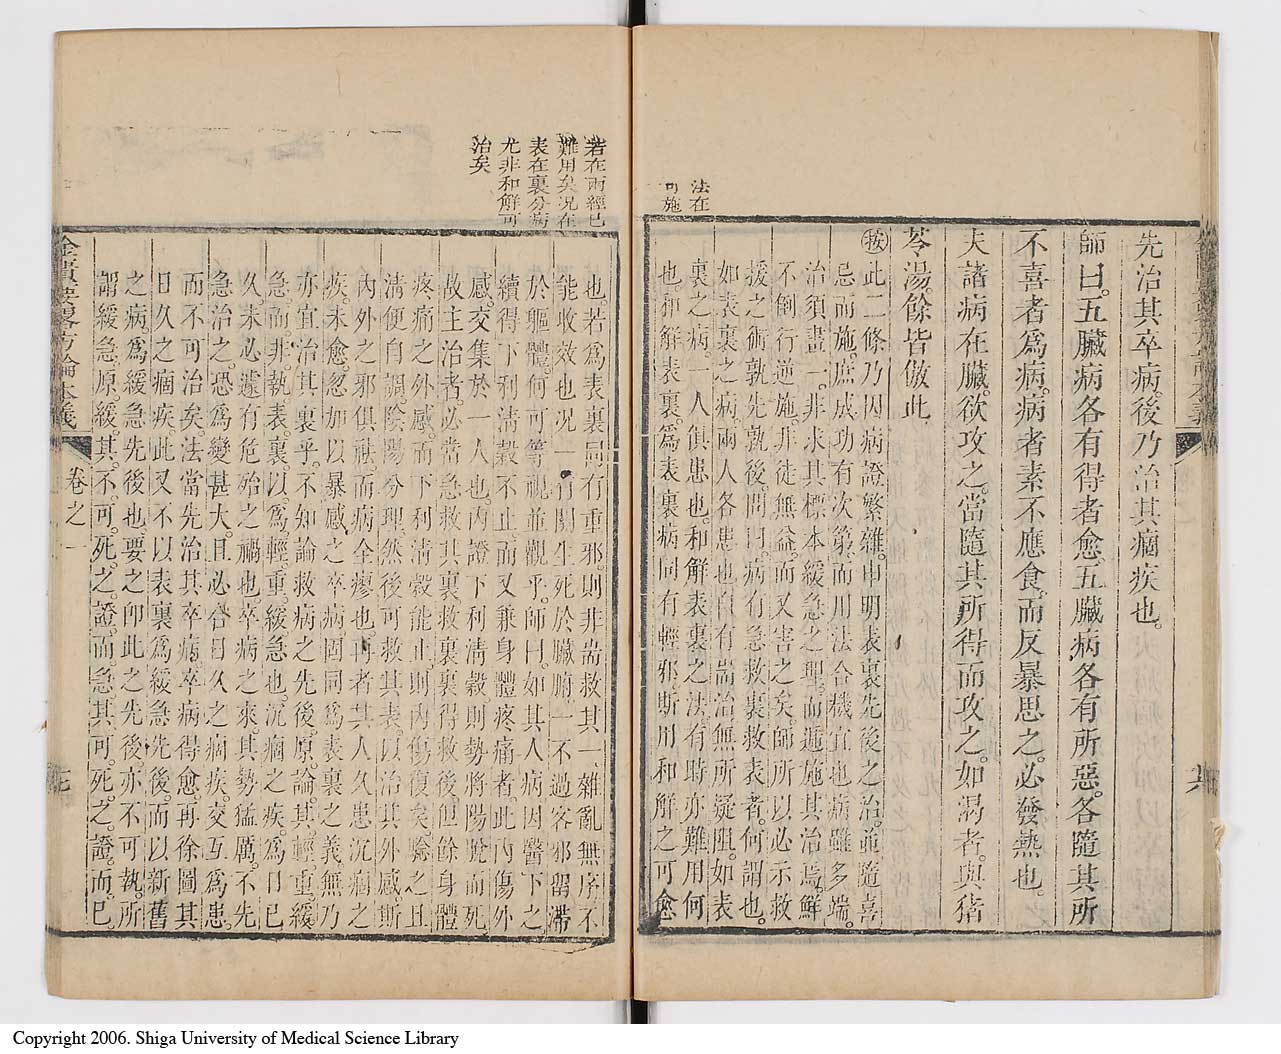 先治其卒病。後乃治其痼疾也。
師曰。五臟病各有得者愈。五臟病各有所惡。各隨其所
不喜者爲病。病者素不應食。而反暴思之。必發熱也。
夫諸病在臟。欲攻之。當隨其所得而攻之。如渴者。與猪
苓湯。餘皆倣此
按此二條乃因病證繁雜。申明表裏先後之治。並隨喜
忌而施。庶成功有次第。而用法合機宜也。病雖多端。
治須畫一。非求其標本緩急之理。而遞施其治焉。鮮
不倒行逆施。非徒無益。而又害之矣。師所以必示救
援之術。孰先孰後。問曰。病有急救裏救表者。何謂也。
如表裏之病。兩人各患也。自有耑治。無所疑阻。如表
裏之病。一人俱患也。和解表裏之法。有時亦難用。何
也。和解表裏。爲表裏病同有輕邪。斯用和解之可愈
法在
可施
也。若爲表裏同有重邪。則非耑救其一。雜亂無序。不
能收效也。况一有關生死於臟腑。一不過客邪留滯
於軀體。何可等視並觀乎。師曰。如其人病因醫下之
續得下利淸穀不止。而又兼身體疼痛者。此內傷外
感。交集於一人也。內證下利淸穀。則勢將陽脫而死
故主治者。必當急救其裏。救裏裏得救後。但餘身體
疼痛之外感。而下利淸穀能止。則內傷復矣。驗之且
淸便自調。陰陽分理。然後可救其表。以治其外感。斯
內外之邪俱祛。而病全瘳也。再者其人久患沉痼之
疾。未愈。忽加以暴感之卒病。固同爲表裏之義。無乃
亦宜治其裏乎。不知論救病之先後。原論其輕重。緩
急。而非執表裏。以爲輕重。緩急也。沉痼之疾。爲日已
久。未必遽有危殆之禍也。卒病之來。其勢猛厲。不先
急治之。恐爲變甚大。且必合日久之痼疾。交互爲患。
而不可治矣。法當先治其卒病。卒病得愈。再徐圖其
日久之痼疾。此又不以表裏爲緩急先後。而以新舊
之病。爲緩急先後也。要之卽此之先後。亦不可執。所
謂緩急。原緩其。不。可。死。之。證。而。急其可。死。之。證。而已
若在兩經已
難用矣况在
表在裏分病
尤非和解可
治矣
金匱要畧方論本義
卷之一